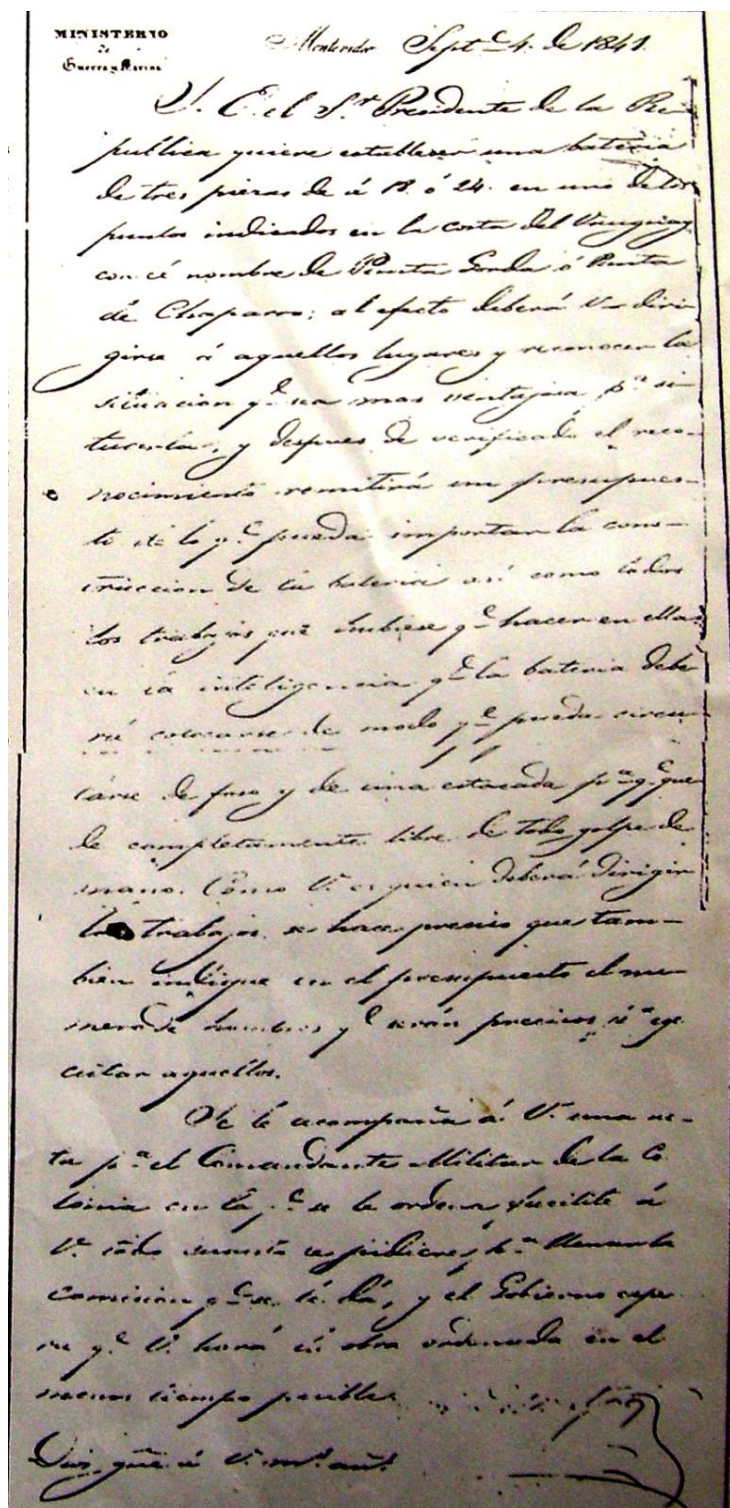 MINISTERIO
de
Guerra y Marina
Montevideo Septe 4. de 1841.
S. E. el Sr Presidente de la Re-
publica quiere establecer una bateria
de tres piezas de á 18. ó 24. en uno de los
puntos indicados en la costa del Uruguay
con el nombre de Punta Gorda ó Punta
de Chaparro; al efecto deberá V. diri
girse á aquellos lugares y reconocer la
situacion qe sea mas ventajosa pa si-
tuarla, y despues de verificado el reco-
nocimiento remitirá un presupues-
to de lo qe pueda importar la cons-
truccion de la bateria asi como todos
los trabajos que hubiese qe hacer en ella
en la inteligencia qe la bateria debe
rá colocarse de modo qe pueda circun
darse de foso y de una estacada pa qe que
de completamente libre de todo golpe de
mano. Como V. es quien deberá dirigir
los trabajos, se hace preciso que tam-
bien indique en el presupuesto el nu-
mero de hombres qe serán precisos pa eje
cutar aquellos.
Se le acompaña á V. una no-
ta pa el Comandante Militar de la Co
lonia en la qe se le ordena facilite á
V. todo cuanto le pidiere pa llenar la
comision qe se le dá, y el Gobierno espe
ra qe V. hará la obra ordenada en el
menor tiempo posible
Dios gue á V. ms. as.